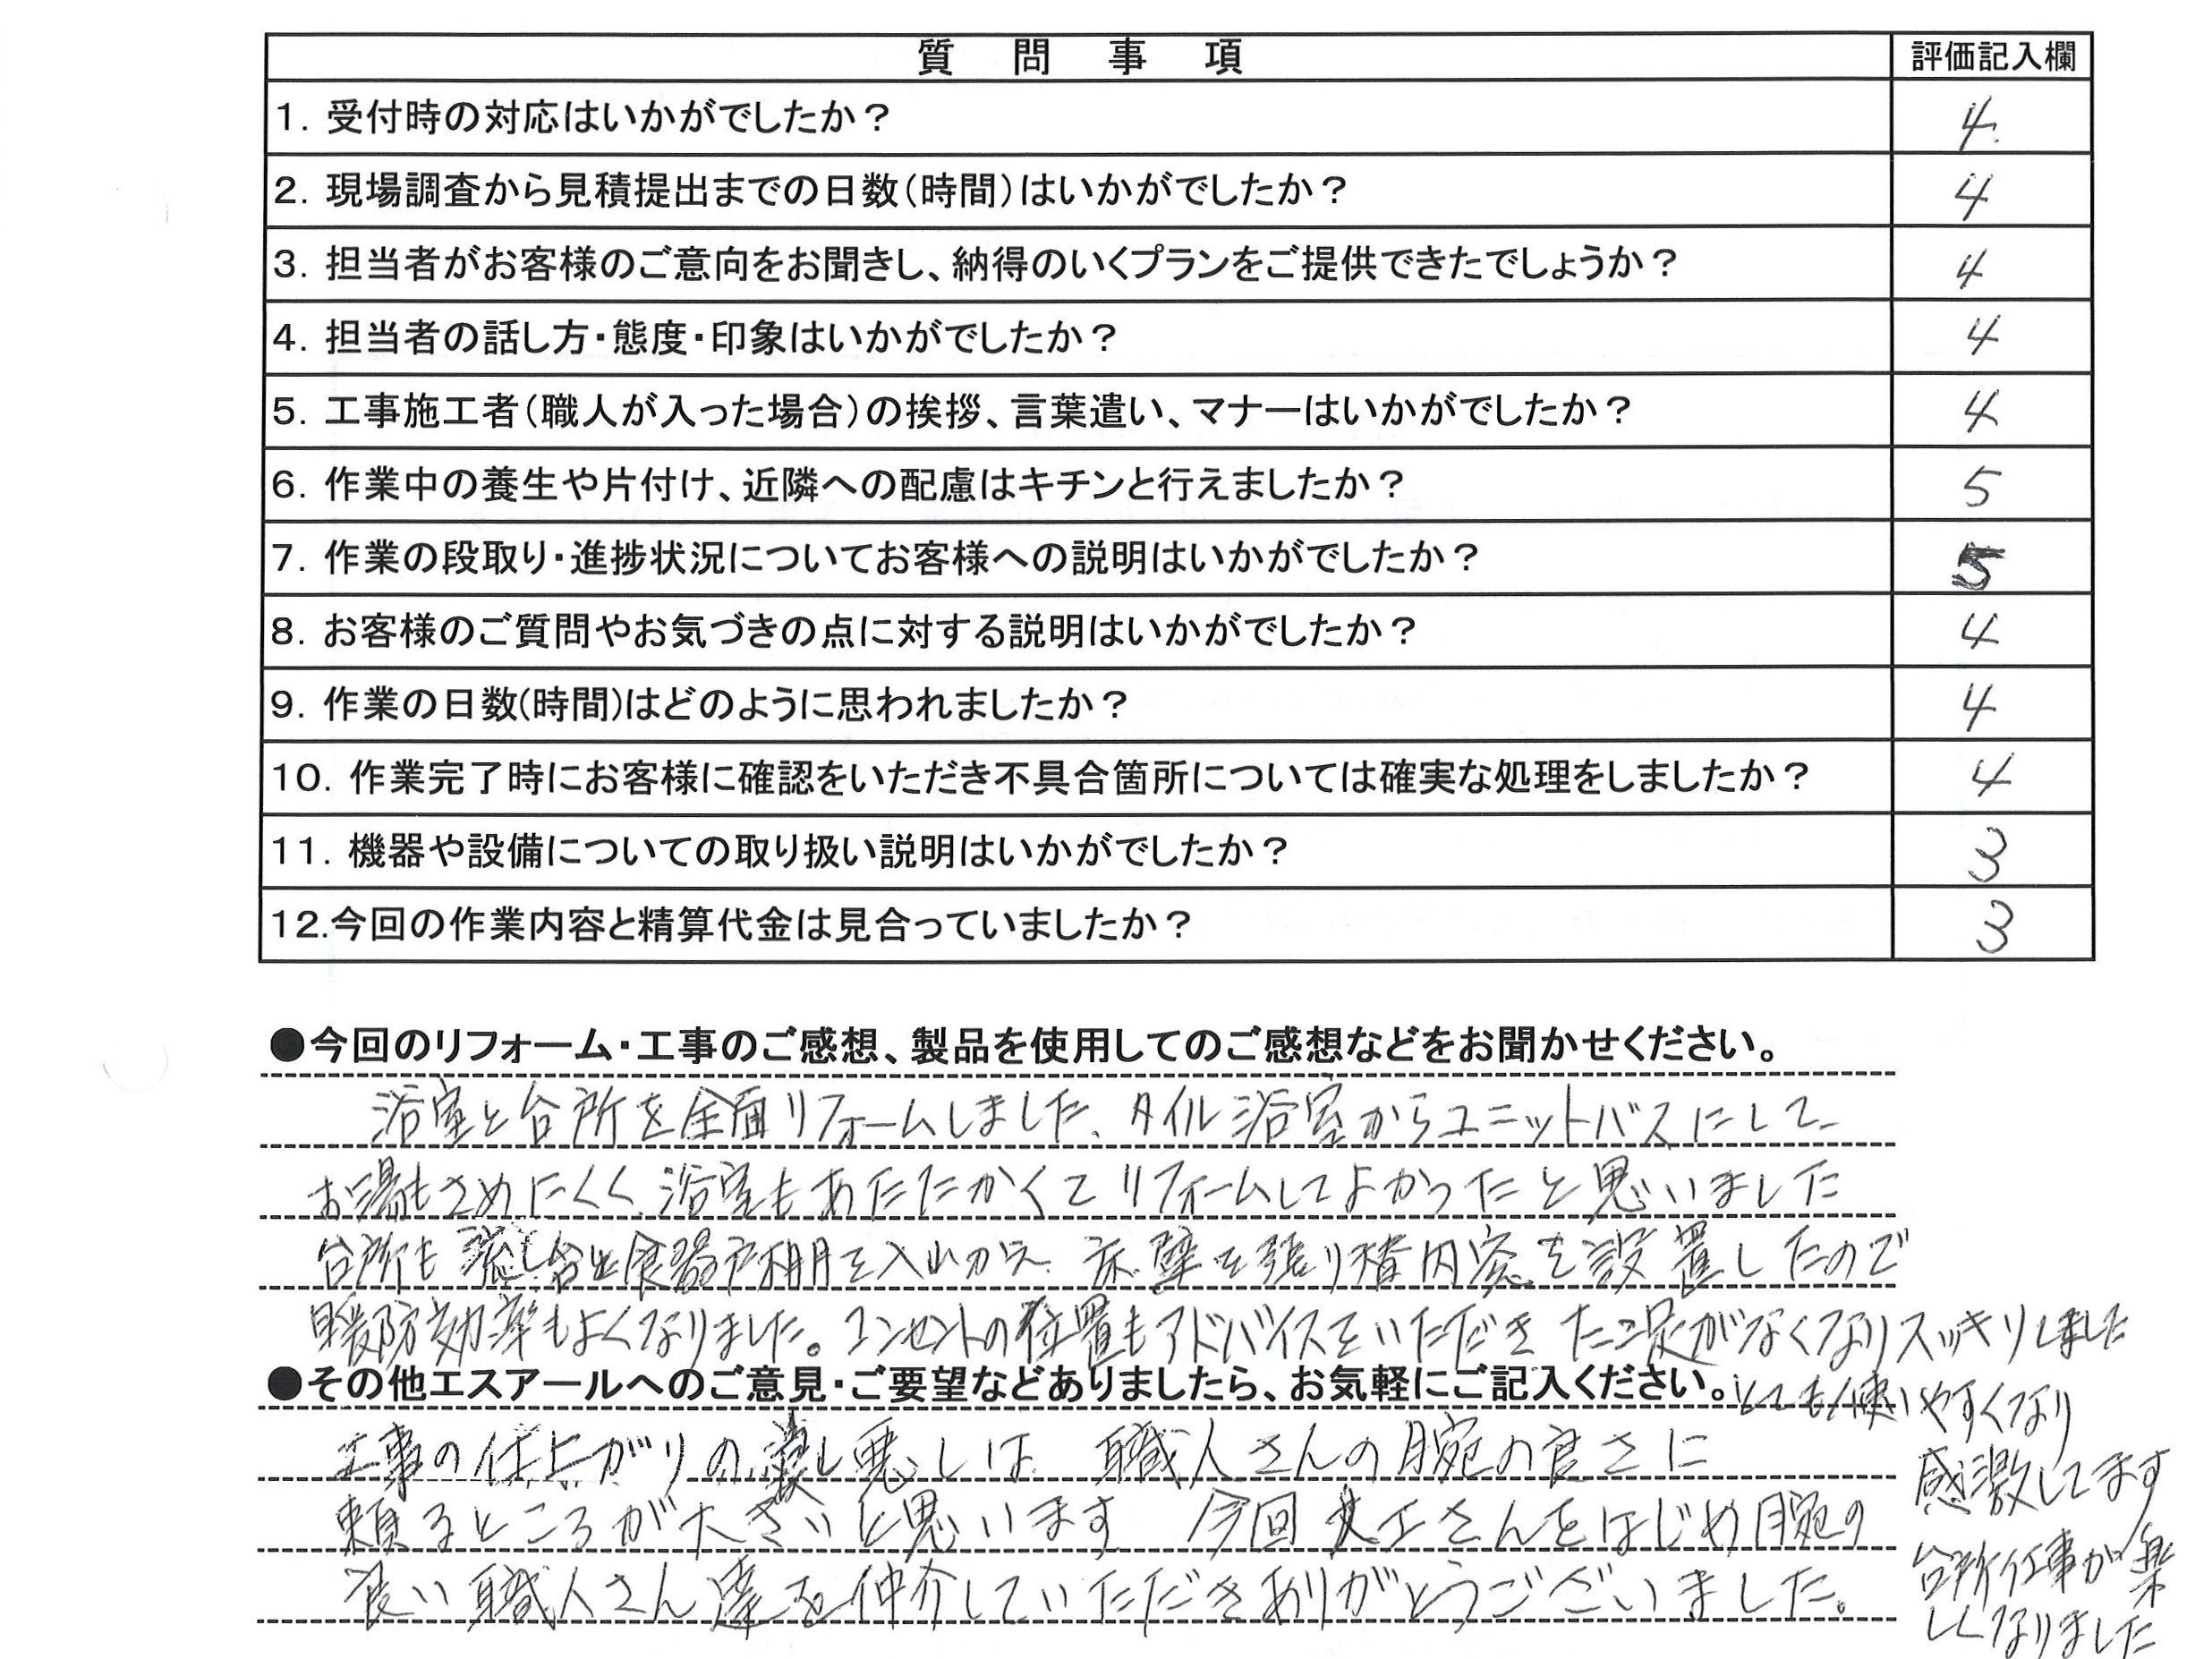 質問事項 評価記入欄
1. 受付時の対応はいかがでしたか? 4
2. 現場調査から見積提出までの日数(時間)はいかがでしたか? 4
3. 担当者がお客様のご意向をお聞きし、納得のいくプランをご提供できたでしょうか? 4
4. 担当者の話し方・態度・印象はいかがでしたか? 4
5. 工事施工者(職人が入った場合)の挨拶、言葉遣い、マナーはいかがでしたか? 4
6. 作業中の養生や片付け、近隣への配慮はキチンと行えましたか? 5
7. 作業の段取り・進捗状況についてお客様への説明はいかがでしたか? 5
8. お客様のご質問やお気づきの点に対する説明はいかがでしたか? 4
9. 作業の日数(時間)はどのように思われましたか? 4
10. 作業完了時にお客様に確認をいただき不具合箇所については確実な処理をしましたか? 4
11. 機器や設備についての取り扱い説明はいかがでしたか? 3
12.今回の作業内容と精算代金は見合っていましたか? 3
●今回のリフォーム・工事のご感想、製品を使用してのご感想などをお聞かせください。
浴室と台所を全面リフォームしました、タイル浴室からユニットバスにして
お湯もさめにくく、浴室もあたたかくてリフォームしてよかったと思いました
台所も流し台と食器戸棚を入れかえ、床、壁を張り替内窓を設置したので
暖防効率もよくなりました。コンセントの位置もアドバイスをいただき たこ足がなくなりスッキリしました
とても使いやすくなり
感激してます
台所仕事が楽
しくなりました
●その他エスアールへのご意見・ご要望などありましたら、お気軽にご記入ください。
工事の仕上がりの良し悪しは 職人さんの腕の良さに
頼るところが大きいと思います 今回大工さんをはじめ腕の
良い職人さん達を仲介していただきありがとうございました。